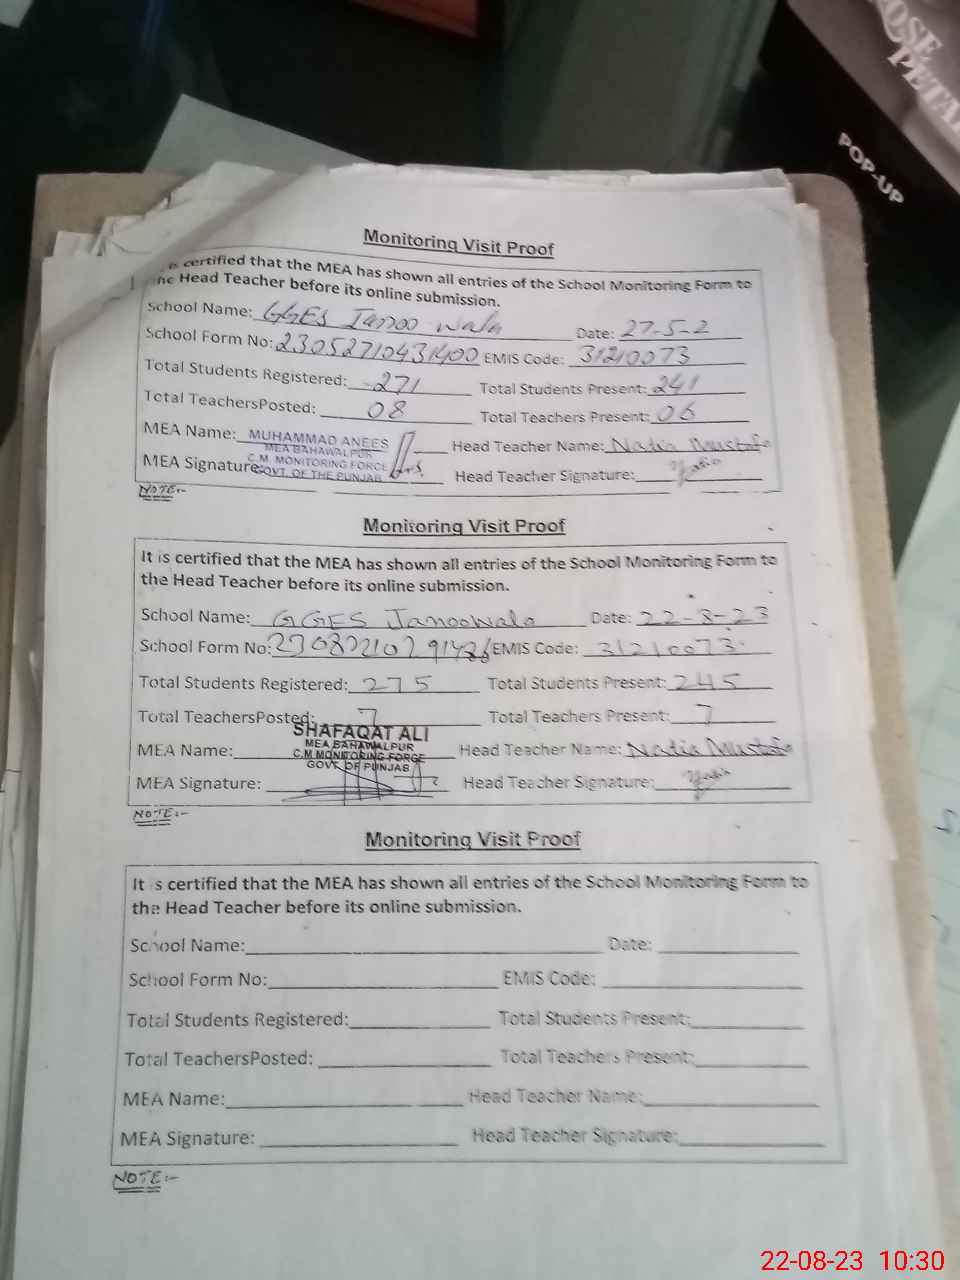 ROSE
PETAL
POP-UP
Monitoring Visit Proof
is certified that the MEA has shown all entries of the School Monitoring Form to
the Head Teacher before its online submission.
School Name: GGES Janoo wala Date: 27-5-2
School Form No: 23052710431400 EMIS Code: 31210073
Total Students Registered: 271 Total Students Present: 241
Total TeachersPosted: 08 Total Teachers Present: 06
MEA Name: MUHAMMAD ANEES Head Teacher Name: Nadia Mustafa
MEA BAHAWALPUR
C.M. MONITORING FORCE
MEA Signature: GOVT. OF THE PUNJAB Head Teacher Signature: Nadia
NOTE:-
Monitoring Visit Proof
It is certified that the MEA has shown all entries of the School Monitoring Form to
the Head Teacher before its online submission.
School Name: GGES Janoowala Date: 22-8-23
School Form No: EMIS Code: 31210073
Total Students Registered: 275 Total Students Present: 245
Total TeachersPosted: 7 Total Teachers Present: 7
SHAFAQAT ALI
MEA BAHAWALPUR
MEA Name: C.M MONITORING FORCE Head Teacher Name: Nadia Mustafa
GOVT. OF PUNJAB
MEA Signature: Head Teacher Signature: Nadia
NOTE:-
Monitoring Visit Proof
It is certified that the MEA has shown all entries of the School Monitoring Form to
the Head Teacher before its online submission.
School Name: Date:
School Form No: EMIS Code:
Total Students Registered: Total Students Present:
Total TeachersPosted: Total Teachers Present:
MEA Name: Head Teacher Name:
MEA Signature: Head Teacher Signature:
NOTE:-
22-08-23 10:30